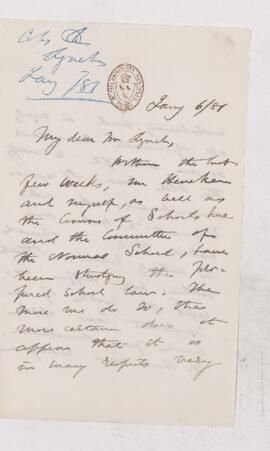 Lynch
Jany 7/81
Jany 6/81
My dear Mr Lynch,
Within the last
few weeks, Mr
and myself, as well as
the Comrs of Schools here
and the Committee of
the Normal School, have
been studying the pro-
posed school law. The
more we do so, the
more certain does it
appear that it is
in many respects very